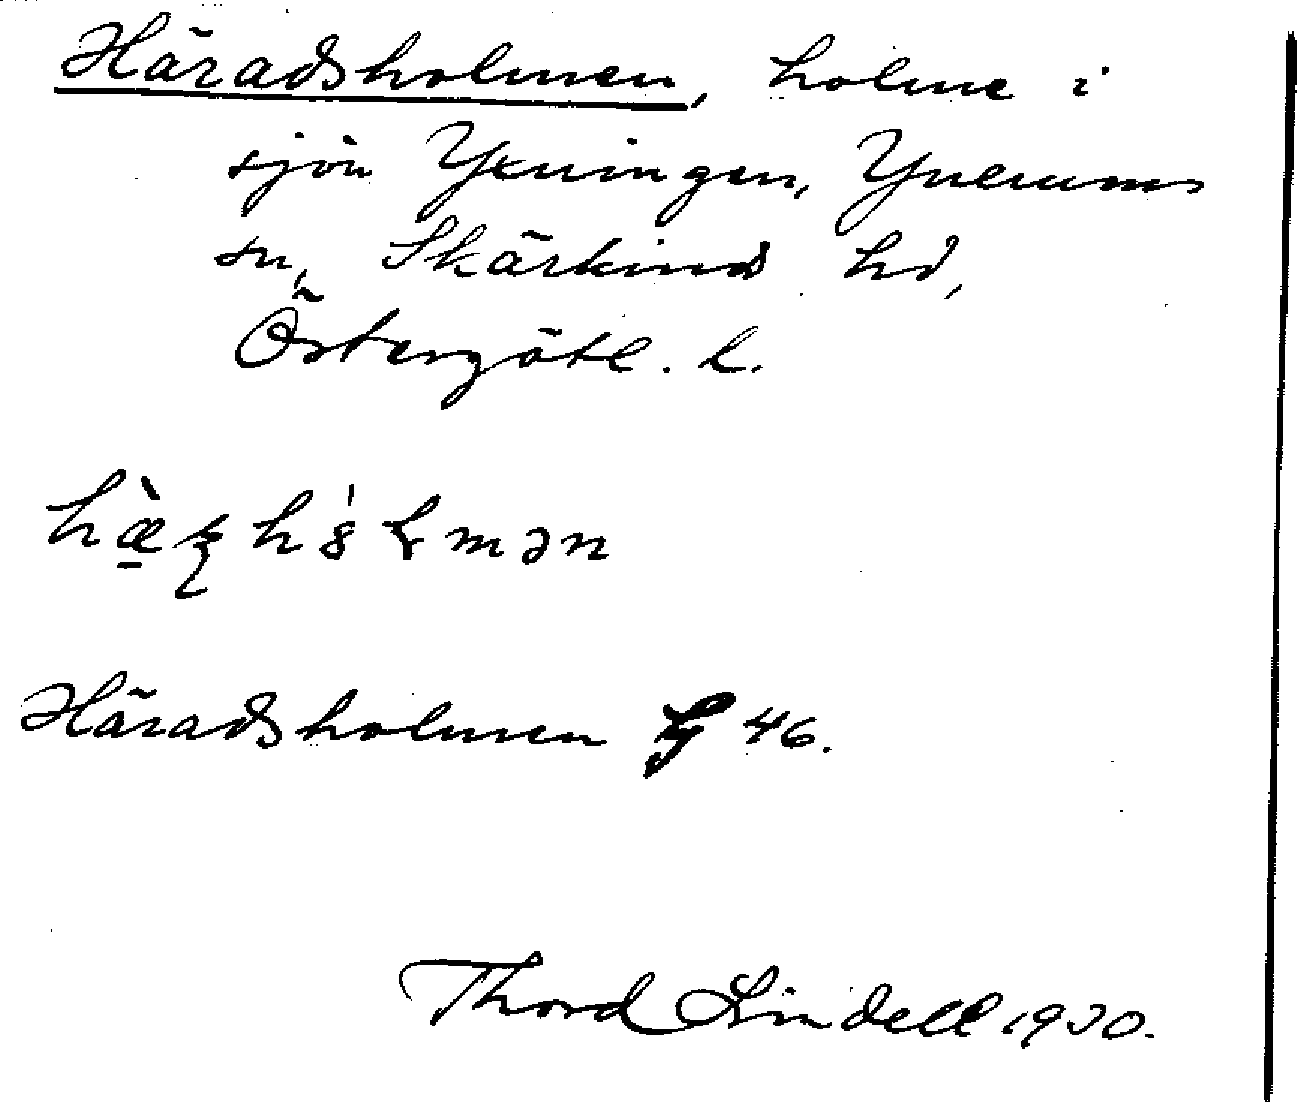 Häradsholmen, holme i
sjön Yxningen, Yxerums
sn, Skärkinds hd,
Östergötl. l.
Häradsholmen 46.
Thord Lindell 1930.